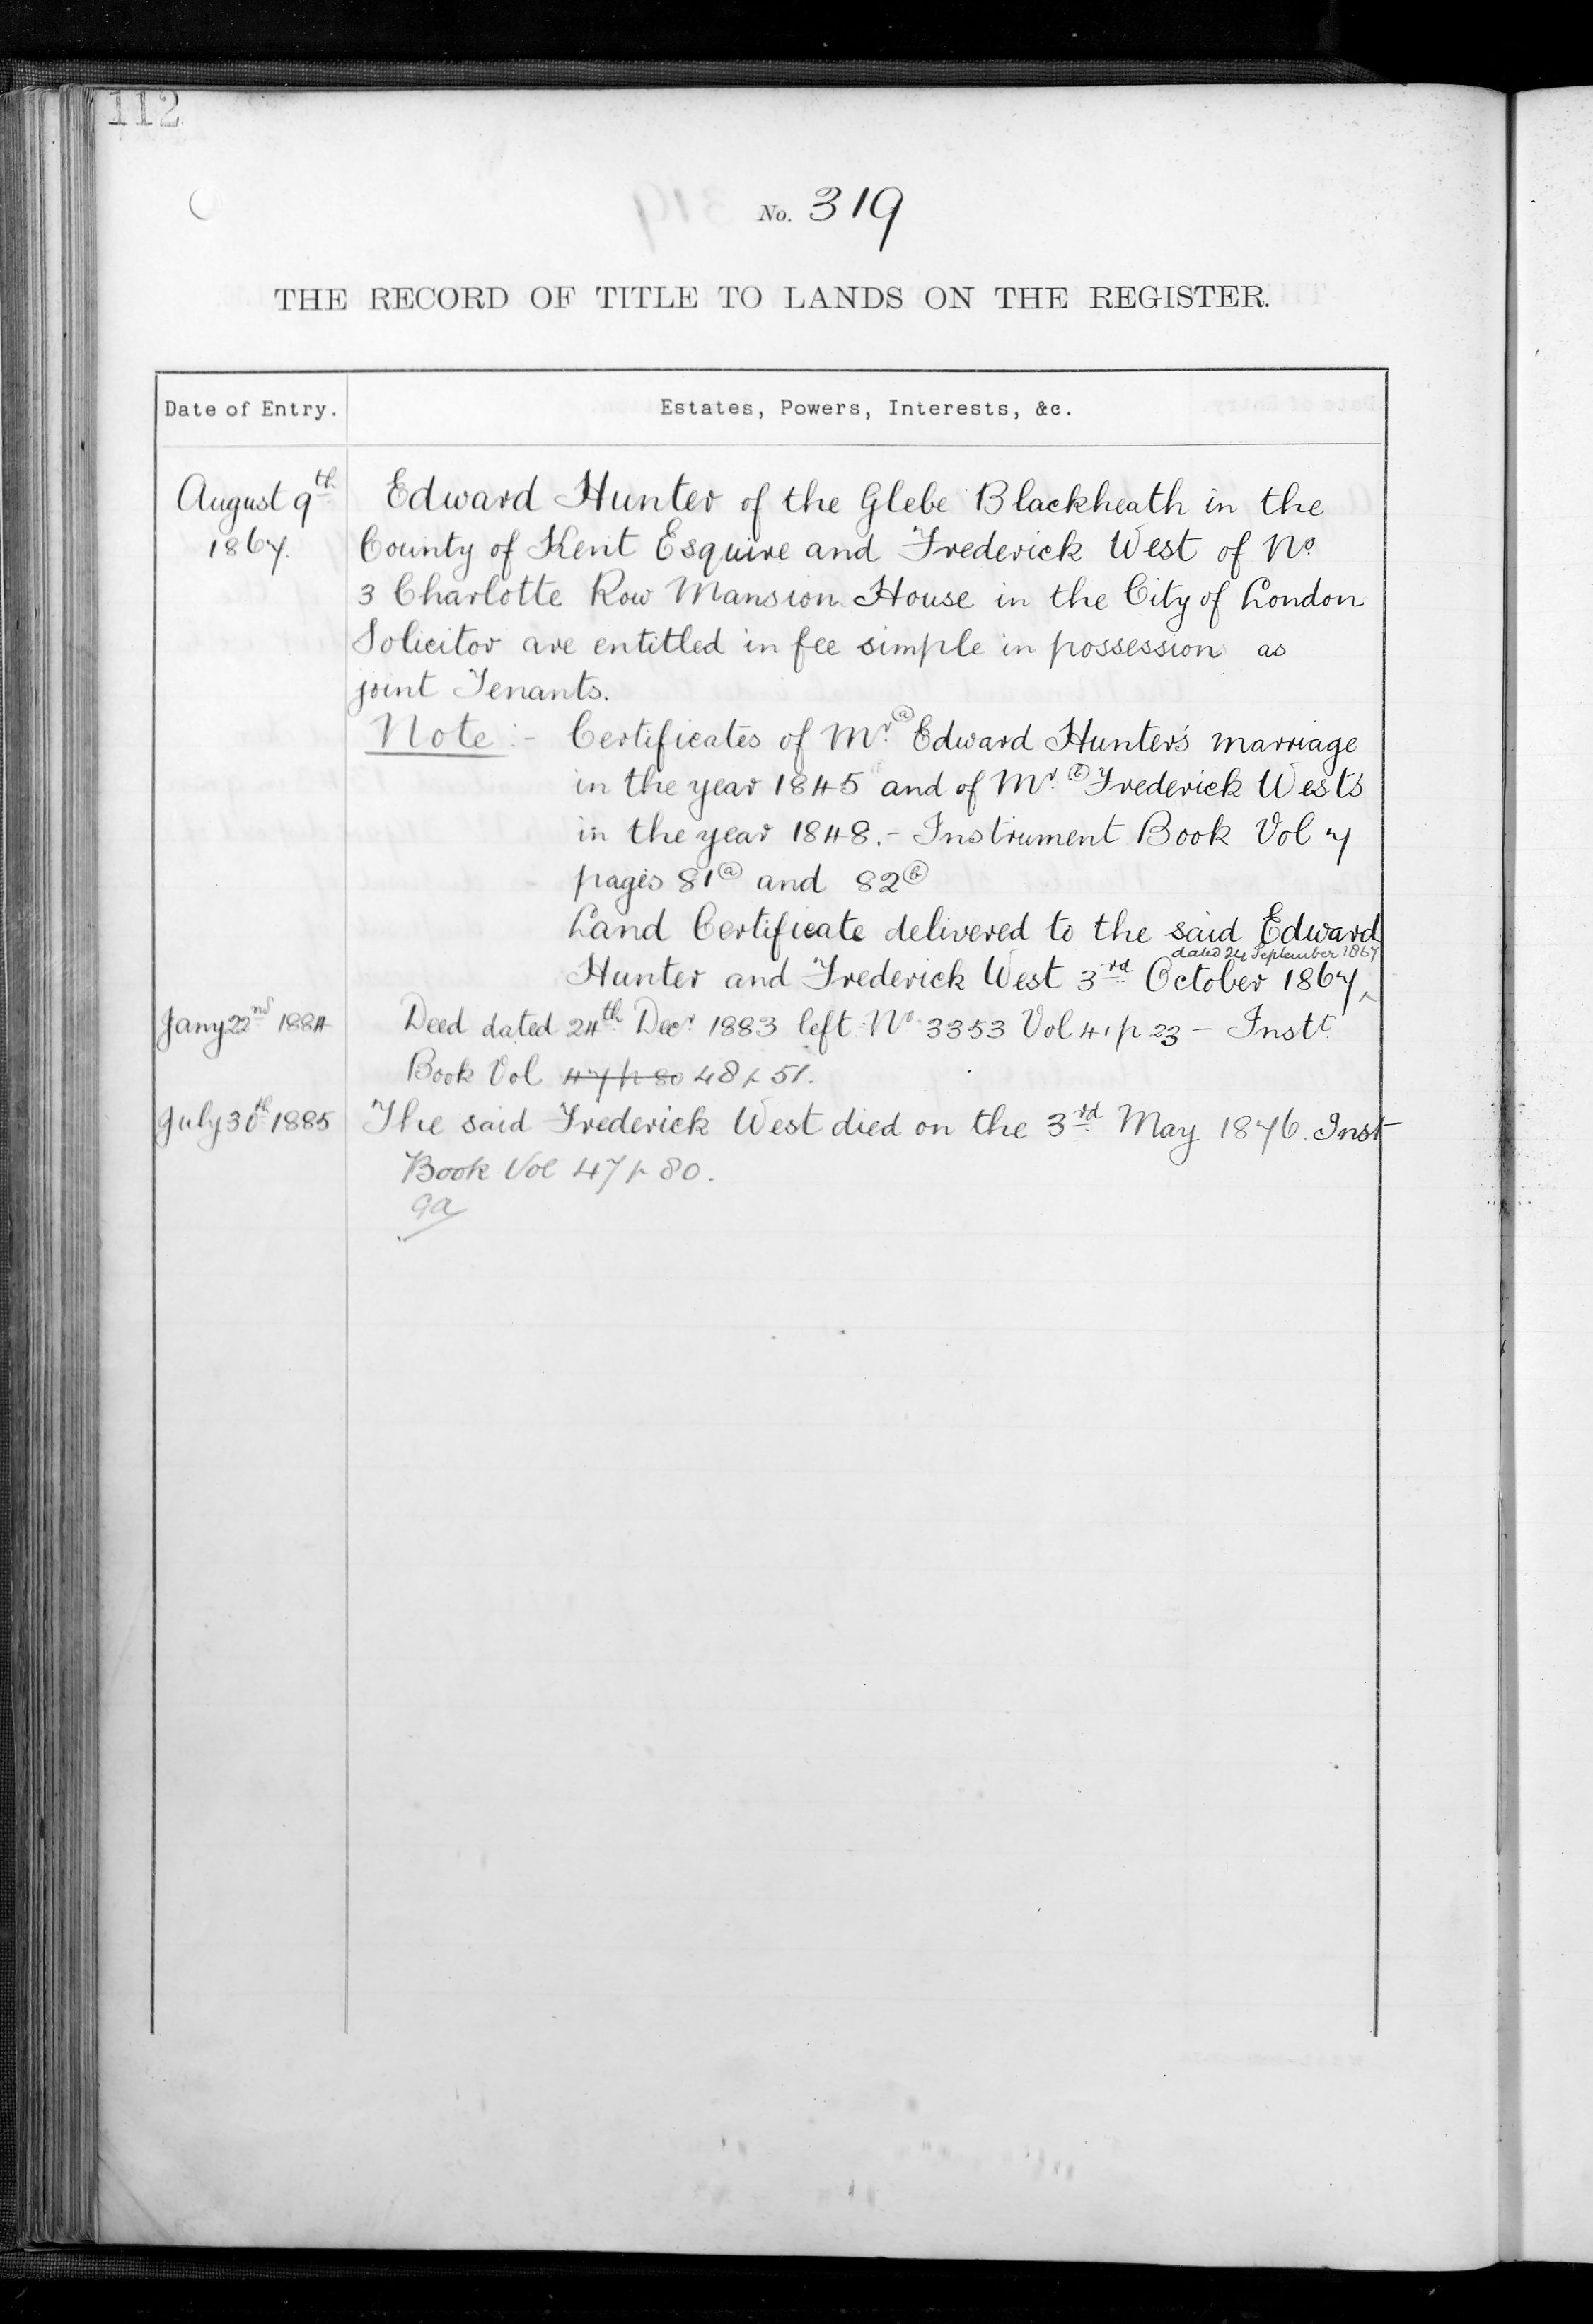 112
No. 319
THE RECORD OF TITLE TO LANDS ON THE REGISTER.
Date of Entry. Estates, Powers, Interests, &c.
August 9th Edward Hunter of the Glebe Blackheath in the
1867. County of Kent Esquire and Frederick West of No.
3 Charlotte Row Mansion House in the City of London
Solicitor are entitled in fee simple in possession as
joint Tenants.
Note :- Certificates of Mr. (a) Edward Hunter's marriage
in the year 1845 and of Mr. (b) Frederick West's
in the year 1848. - Instrument Book Vol 7
pages 81 (a) and 82 (b)
Land Certificate delivered to the said Edward
dated 24 September 1867
Hunter and Frederick West 3rd October 1867 ^
Jany 22nd 1884 Deed dated 24th Decr 1883 left No 3353 Vol 4, p 23 - Instt
Book Vol 47 p 80 48 p 51.
July 30th 1885 The said Frederick West died on the 3rd May 1876. Inst
Book Vol 47 p 80.